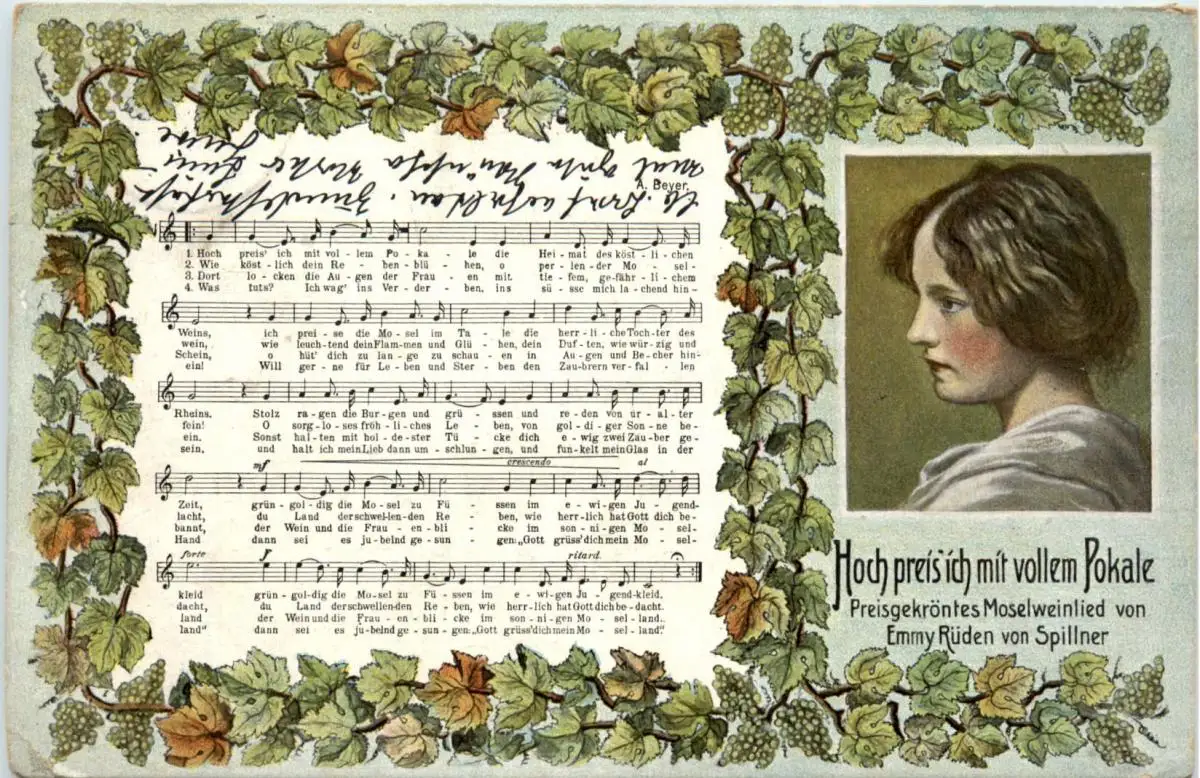 A. Beyer.
1. Hoch preis' ich mit vol - lem Po - ka - le die Hei - mat des köst - li - chen
2. Wie köst - lich dein Re - ben - blü - hen, o per - len - der Mo - sel -
3. Dort lo - cken die Au - gen der Frau - en mit tie - fem, gefähr - li - chem
4. Was tuts? Ich wag' ins Ver - der - ben, ins sü - sse mich la - chend hin -
Weins, ich prei - se die Mo - sel im Ta - le die herr - li - che Toch - ter des
wein, wie leuch - tend dein Flam - men und Glü - hen, dein Duf - ten, wie wür - zig und
Schein, o hüt' dich zu lan - ge zu schau - en in Au - gen und Be - cher hin -
ein! Will ger - ne für Le - ben und Ster - ben den Zau - brern ver - fal - len
Rheins. Stolz ra - gen die Bur - gen und grü - ssen und re - den von ur - al - ter
fein! O sorg - lo - ses fröh - li - ches Le - ben, von gol - di - ger Son - ne be -
ein. Sonst hal - ten mit hol - de - ster Tü - cke dich e - wig zwei Zau - ber ge -
sein, und halt ich mein Lieb dann um - schlun - gen, und fun - kelt mein Glas in der
mf crescendo al
Zeit, grün - gol - dig die Mo - sel zu Fü - ssen im e - wi - gen Ju - gend-
lacht, du Land der schwel - len - den Re - ben, wie herr - lich hat Gott dich be -
bannt, der Wein und die Frau - en - bli - cke im son - ni - gen Mo - sel-
Hand dann sei es ju - belnd ge - sun - gen: „Gott grüss' dich mein Mo - sel-
forte f ritard.
kleid grün - gol - dig die Mo - sel zu Fü - ssen im e - wi - gen Ju - gend - kleid.
dacht, du Land der schwellenden Re - ben, wie herr - lich hat Gott dich be - dacht.
land der Wein und die Frau - en - bli - cke im son - ni - gen Mo - sel - land.
land" dann sei es ju - belnd ge - sun - gen: „Gott grüss' dich mein Mo - sel - land."
Hoch preis' ich mit vollem Pokale
Preisgekröntes Moselweinlied von
Emmy Rüden von Spillner